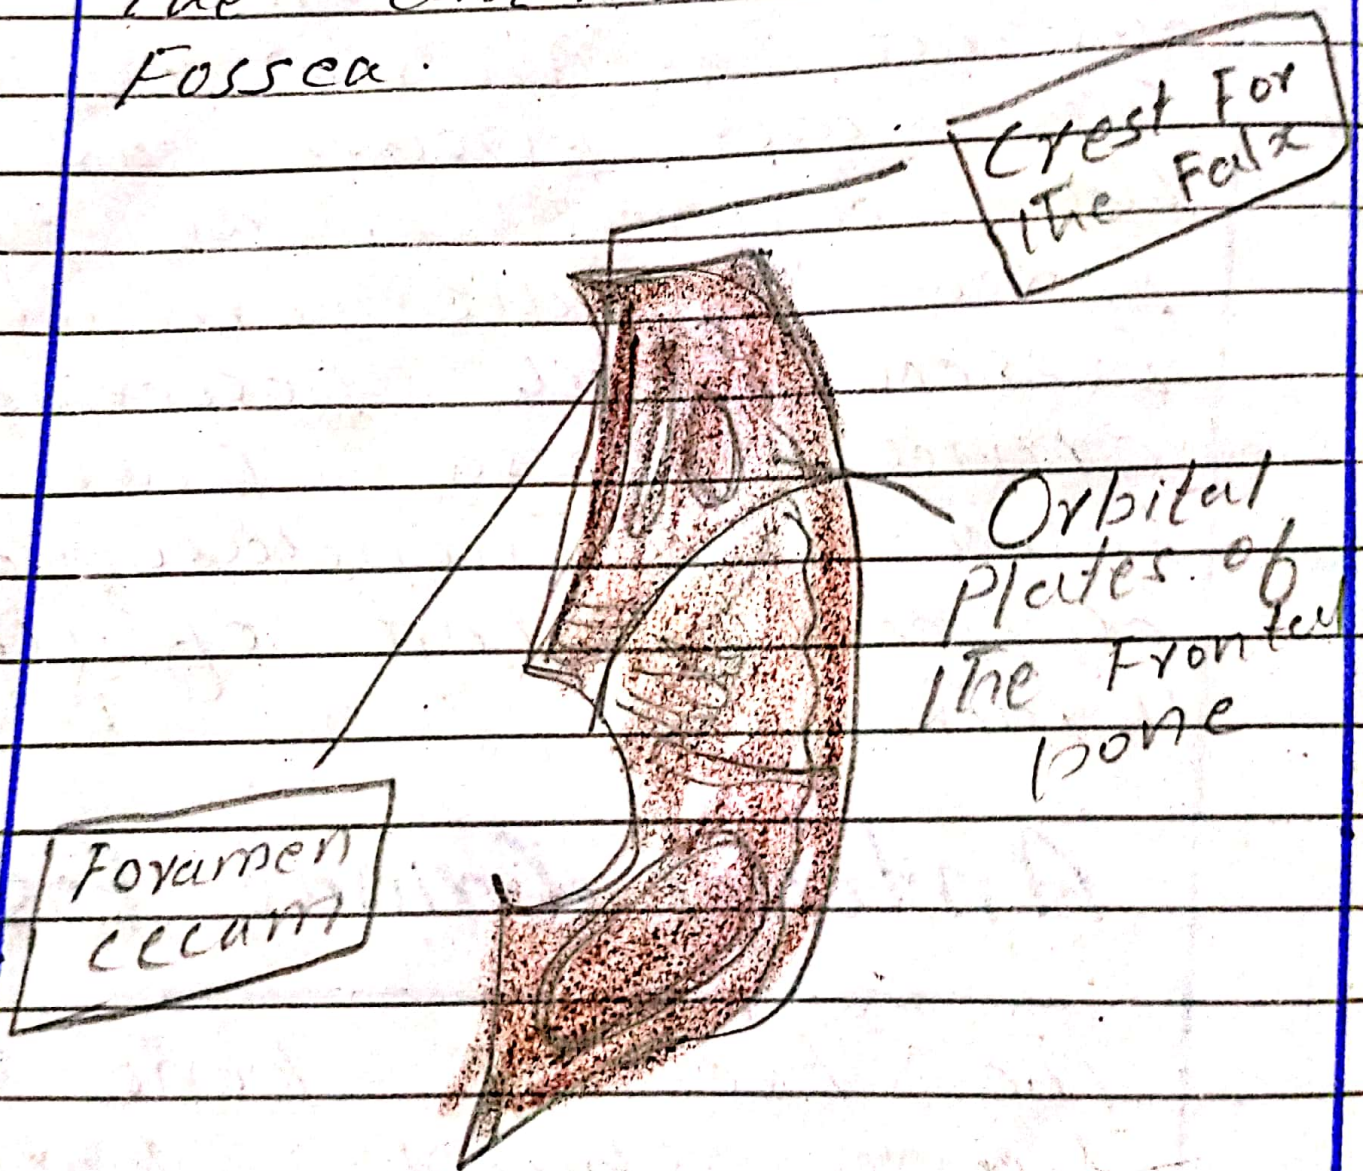 The
Fossea.
Crest For
The Falx
Orbital
Plates of
The Frontal
bone
Foramen
cecam